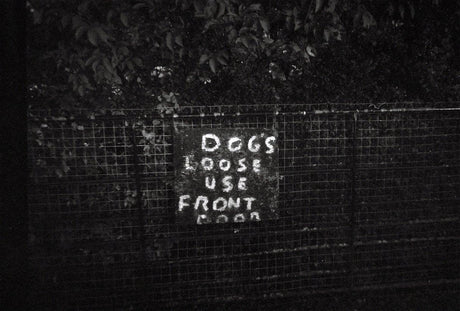 DOG'S
LOOSE
USE
FRONT
DOOR